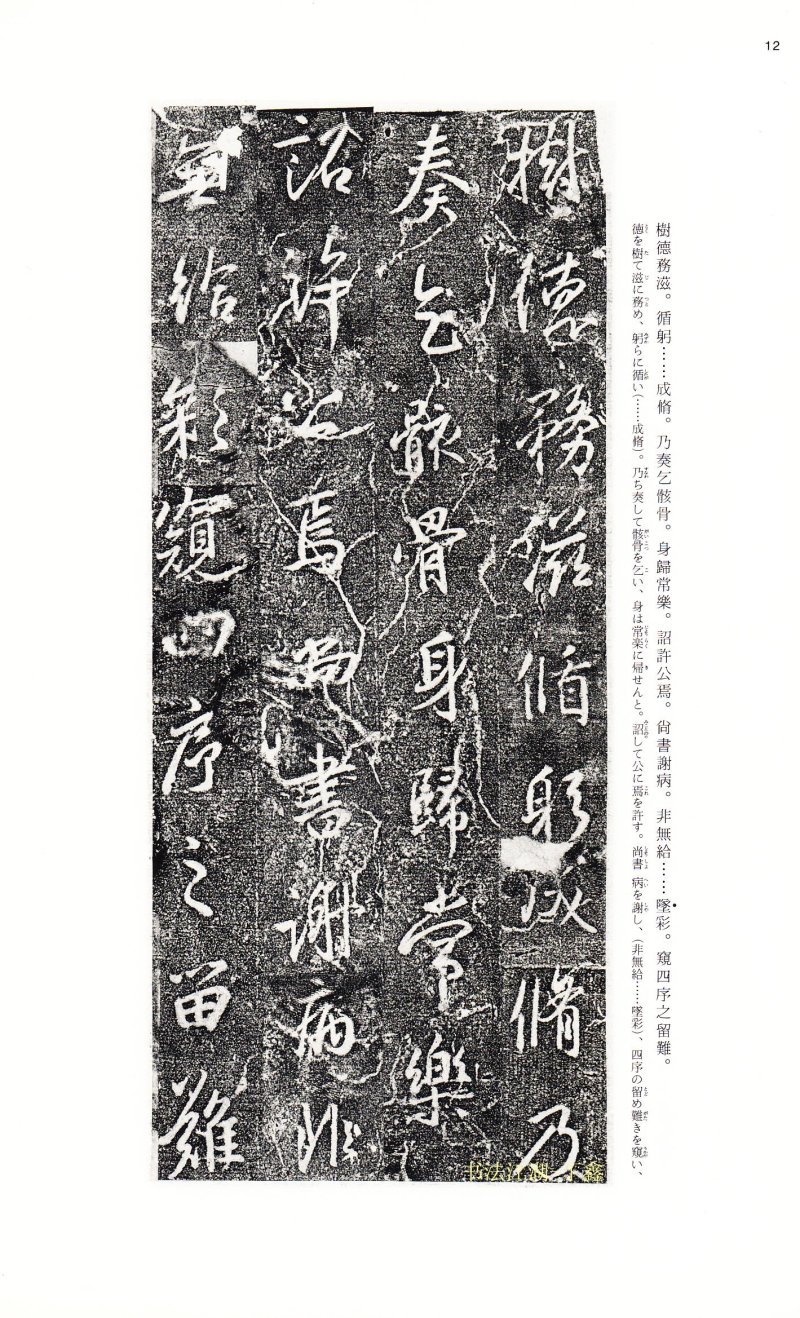 12
樹德務滋。循躬……成脩。乃奏乞骸骨。身歸常樂。詔許公焉。尙書謝病。非無給……墜彩。窺四序之留難。
德を樹て滋に務め、躬らに循い(……成脩)。乃ち奏して骸骨を乞い、身は常楽に帰せんと。詔して公に焉を許す。尚書 病を謝し、(非無給……墜彩)、四序の留め難きを窺い、
樹德務滋循躬成脩乃
奏乞骸骨身歸常樂
詔許公焉尚書謝病非
無給彩窺四序之留難